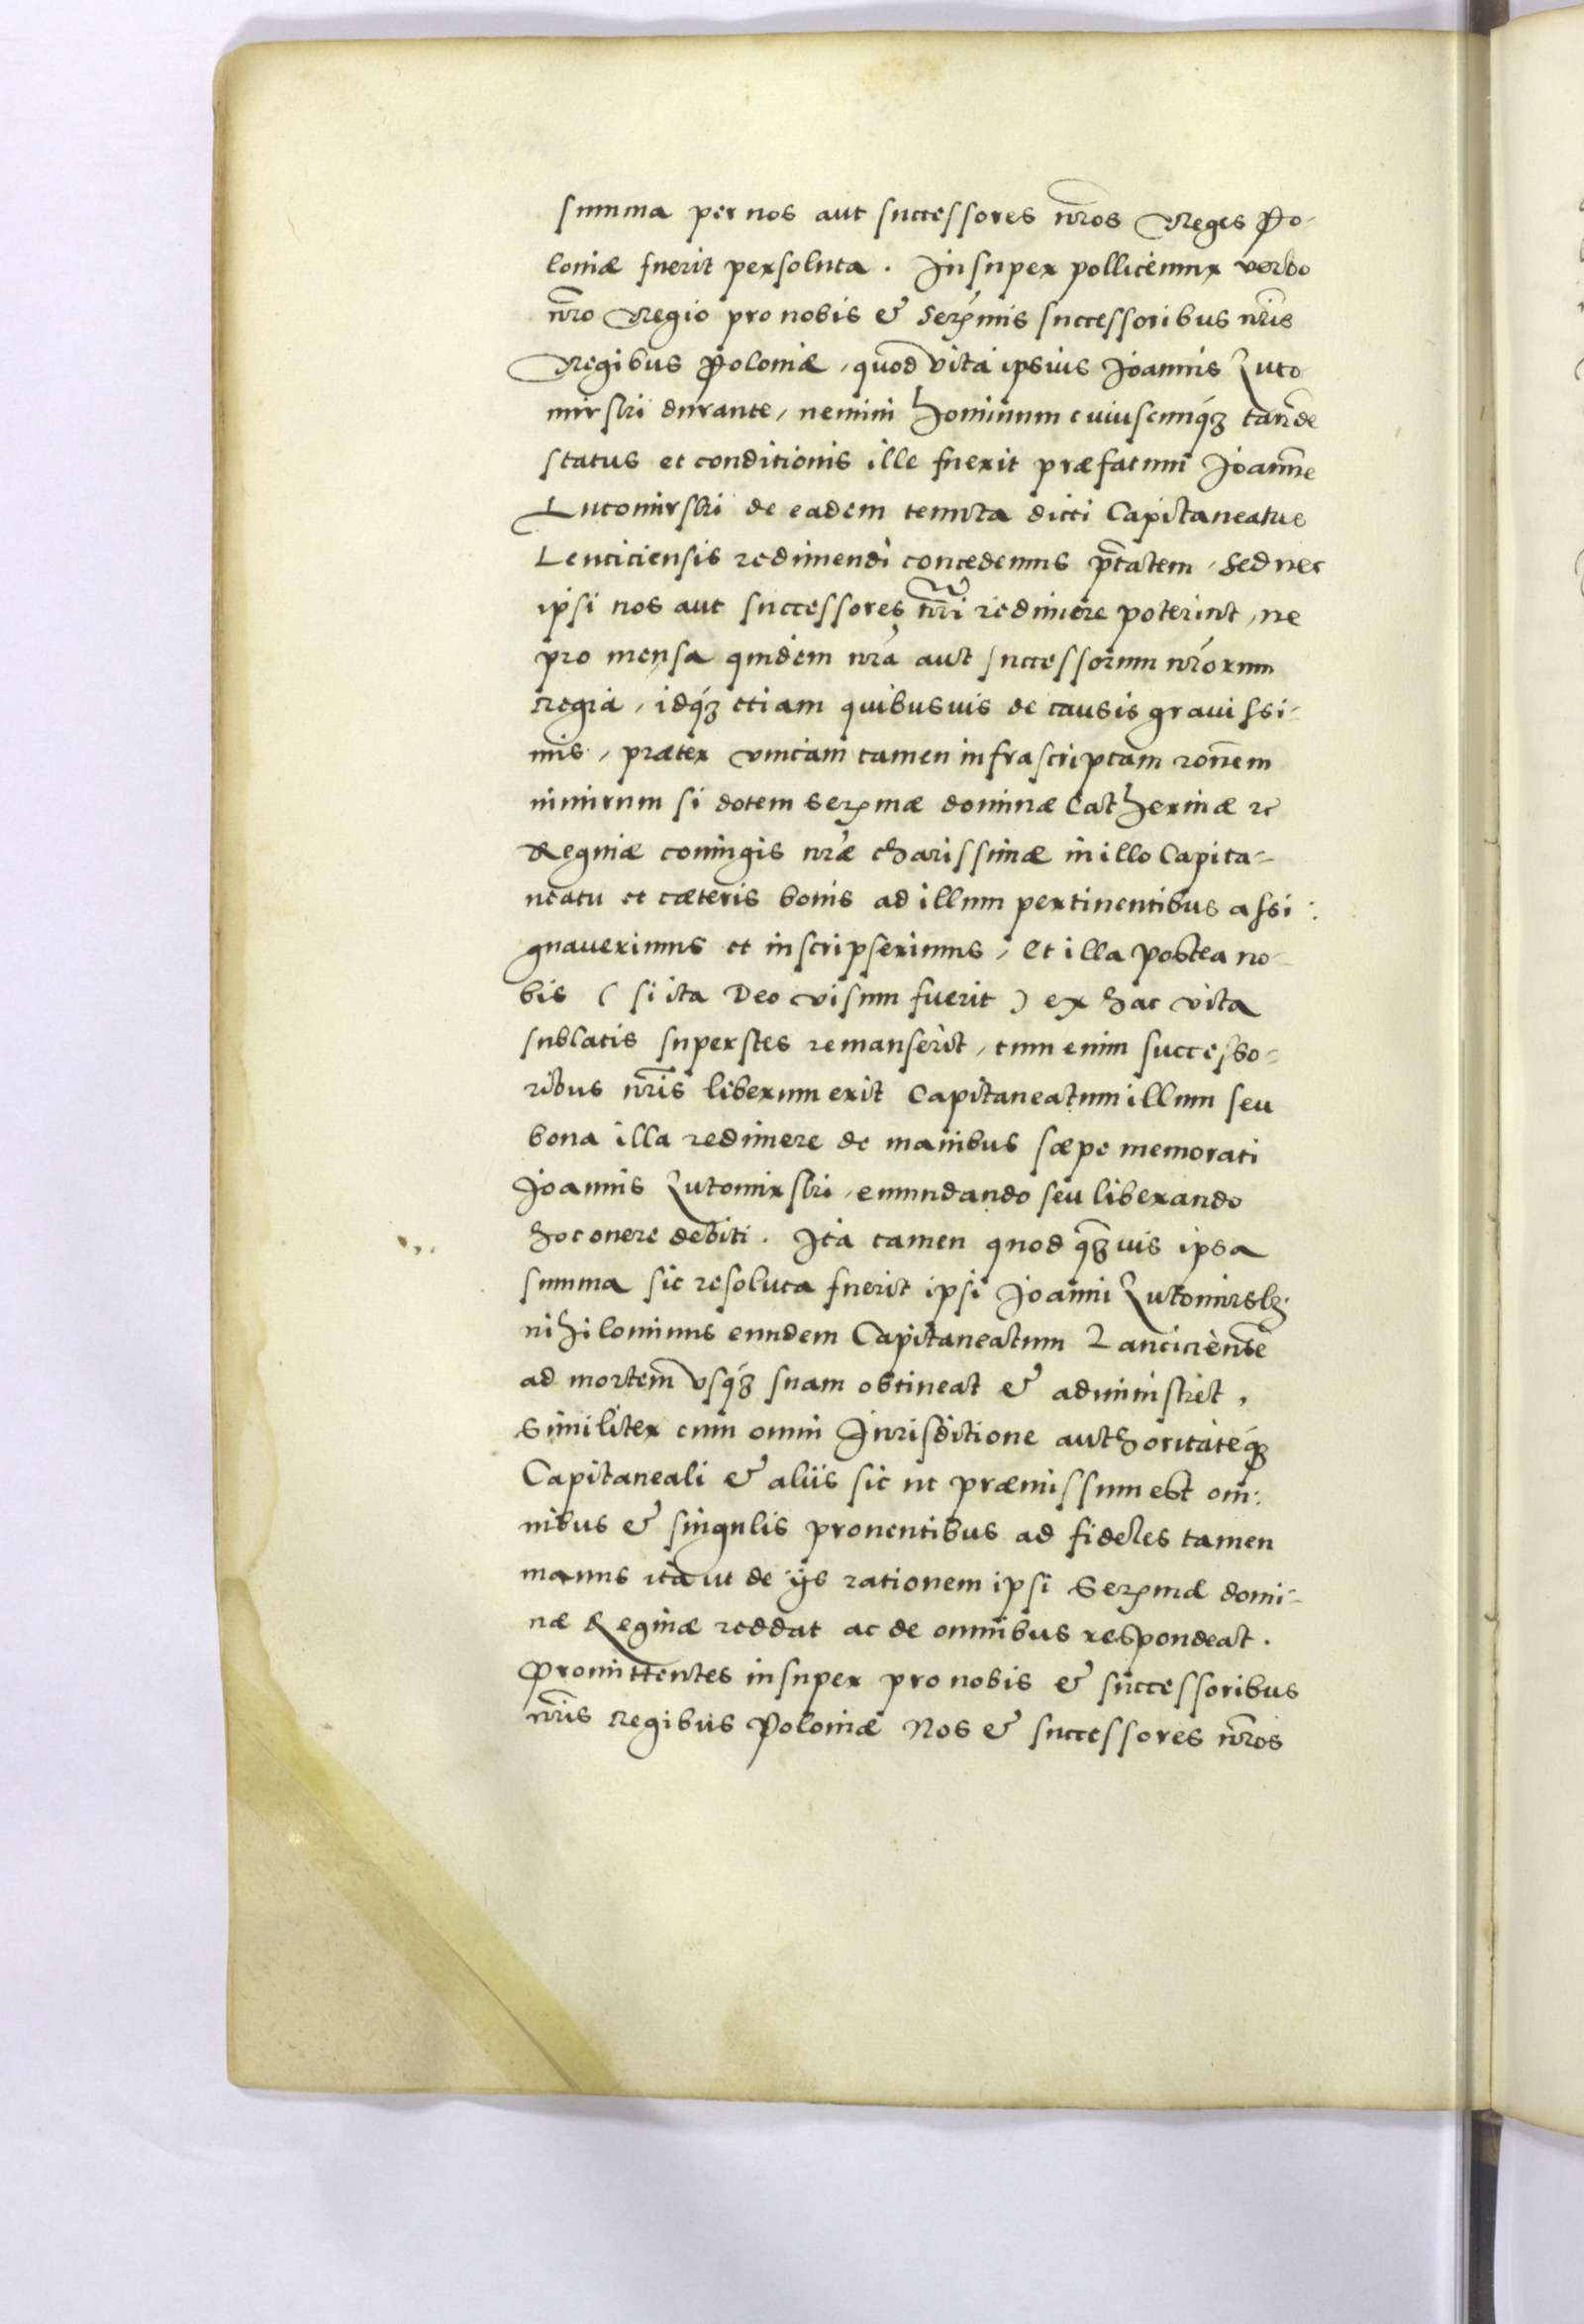 summa per nos aut successores nr̃os Reges Po-
loniæ fuerit persoluta. Insuper pollicemur verbo
nr̃o Regio pro nobis & Serẽmis successoribus nr̃is
Regibus Poloniæ, quod vita ipsius Joannis Luto
mirski durante, nemini hominum cuiuscunq́ꝫ tandẽ
status et conditionis ille fuerit præfatum Joannẽ
Lutomirski de eadem tenuta dicti Capitaneatus
Lenciciensis redimendi concedemus p̃tatem, sed nec
ipsi nos aut successores nr̃i redimere poterint, ne
pro mensa quidem nr̃a aut successorum nr̃orum
Regia, idq́ꝫ etiam quibusuis de causis grauissi-
mis, præter vnicam tamen infrascriptam ron̄em
nimirum si dotem Serẽmæ dominæ Catherinæ
Reginæ coniugis nr̃æ charissimæ in illo Capita-
neatu et cæteris bonis ad illum pertinentibus assi:
gnauerimus et inscripserimus, et illa postea no-
bis (si ita Deo visum fuerit) ex hac vita
sublatis superstes remanserit, tum enim successo-
ribus nr̃is liberum erit Capitaneatum illum seu
bona illa redimere de manibus sæpe memorati
Joannis Lutomirski, emundando seu liberando
hoc onere debiti. Ita tamen quod q̃ꝫuis ipsa
summa sic resoluta fuerit ipsi Joanni Lutomirskꝫ
nihilominus eundem Capitaneatum Lanciciensẽ
ad mortem vsq́ꝫ suam obtineat & administret,
Similiter cum omni Jurisditione authoritateq́ꝫ
Capitaneali & aliis sic ut præmissum est om̄:
nibus & singulis prouentibus ad fideles tamen
manus ita ut de ijs rationem ipsi Serẽmæ domi-
næ Reginæ reddat ac de omnibus respondeat.
Promittentes insuper pro nobis & successoribus
nr̃is Regibus Poloniæ Nos & successores nr̃os